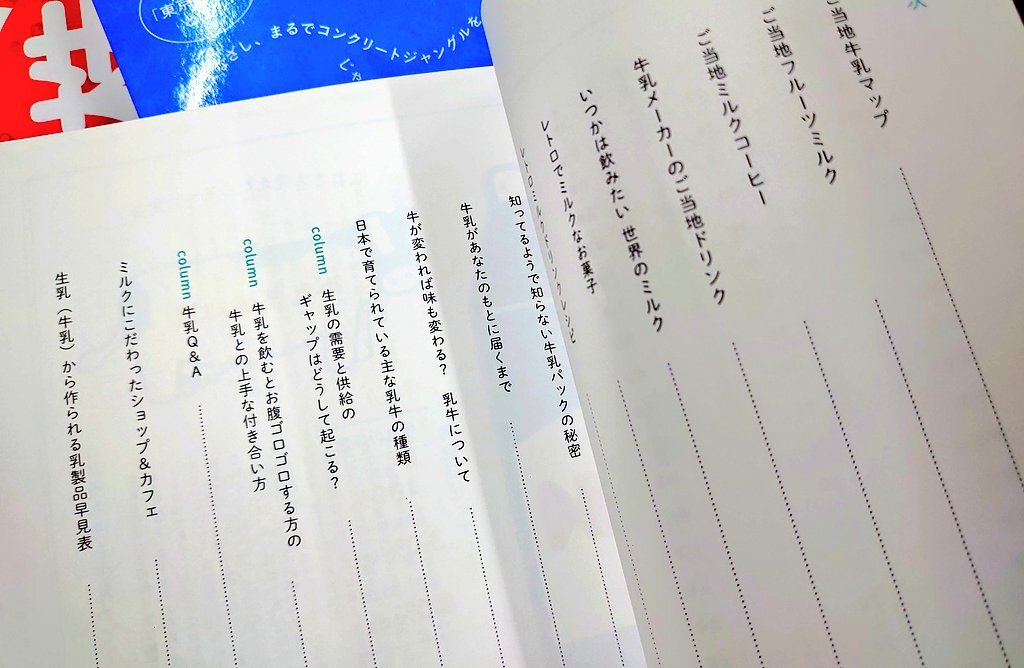 次
ご当地牛乳マップ
ご当地フルーツミルク
ご当地ミルクコーヒー
牛乳メーカーのご当地ドリンク
いつかは飲みたい 世界のミルク
レトロでミルクなお菓子
レトロミルクドリンクレシピ
知ってるようで知らない牛乳パックの秘密
牛乳があなたのもとに届くまで
牛が変われば味も変わる? 乳牛について
日本で育てられている主な乳牛の種類
column 生乳の需要と供給の
ギャップはどうして起こる?
column 牛乳を飲むとお腹ゴロゴロする方の
牛乳との上手な付き合い方
column 牛乳Q&A
ミルクにこだわったショップ&カフェ
生乳(牛乳)から作られる乳製品早見表
「東
ざし、まるでコンクリートジャングルを